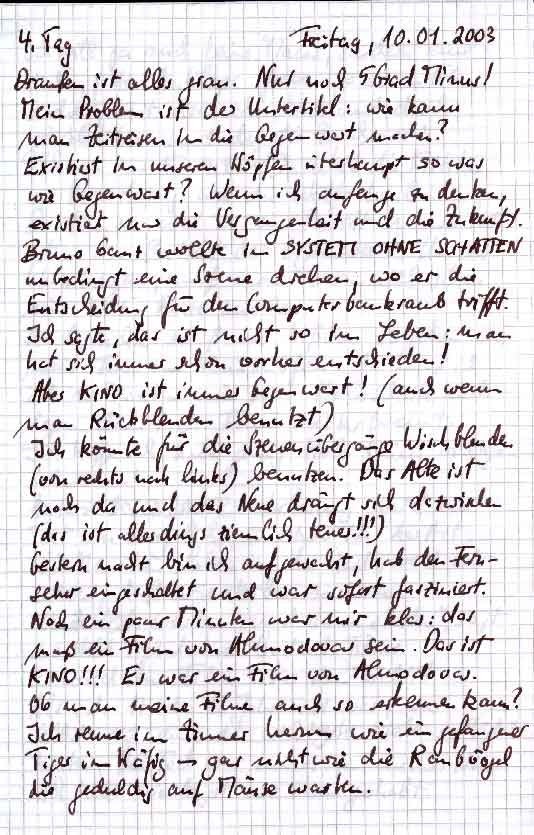 4. Tag Freitag, 10.01.2003
Draußen ist alles grau. Nur noch 5 Grad Minus!
Mein Problem ist der Untertitel: wie kann
man Zeitreisen in die Gegenwart machen?
Existiert in unseren Köpfen überhaupt so was
wie Gegenwart? Wenn ich anfange zu denken,
existiert nur die Vergangenheit und die Zukunft.
Bruno Ganz wollte in SYSTEM OHNE SCHATTEN
unbedingt eine Szene drehen, wo er die
Entscheidung für den Computerbankraub trifft.
Ich sagte, das ist nicht so im Leben: man
hat sich immer schon vorher entschieden!
Aber KINO ist immer Gegenwart! (auch wenn
man Rückblenden benutzt)
Ich könnte für die Szenenübergänge Wischblenden
(von rechts nach links) benutzen. Das Alte ist
noch da und das Neue drängt sich dazwischen
(das ist allerdings ziemlich teuer!!!)
Gestern nacht bin ich aufgewacht, hab den Fern-
seher eingeschaltet und war sofort fasziniert.
Nach ein paar Minuten war mir klar: das
muß ein Film von Almodovar sein. Das ist
KINO!!! Es war ein Film von Almodovar.
Ob man meine Filme auch so erkennen kann?
Ich renne im Zimmer herum wie ein gefangener
Tiger im Käfig – gar nicht wie die Raubvögel
die geduldig auf Mäuse warten.